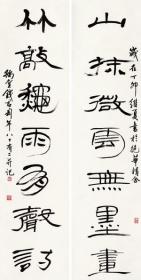 歲在丁卯維夏書於抱華精舍
山抹微雲無墨畫
竹敲龝雨有聲詩
豫堂錢君匋年八十有二并記